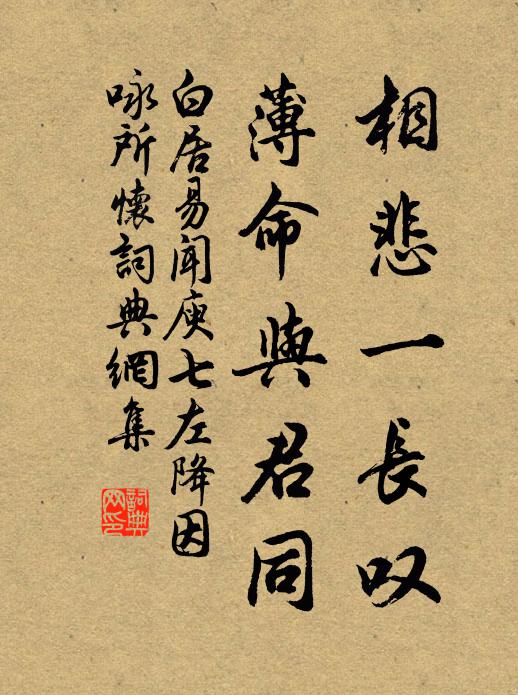 相悲一長叹
薄命與君同
白居易聞庾七左降因
咏所懷詞典網集
詞典网印